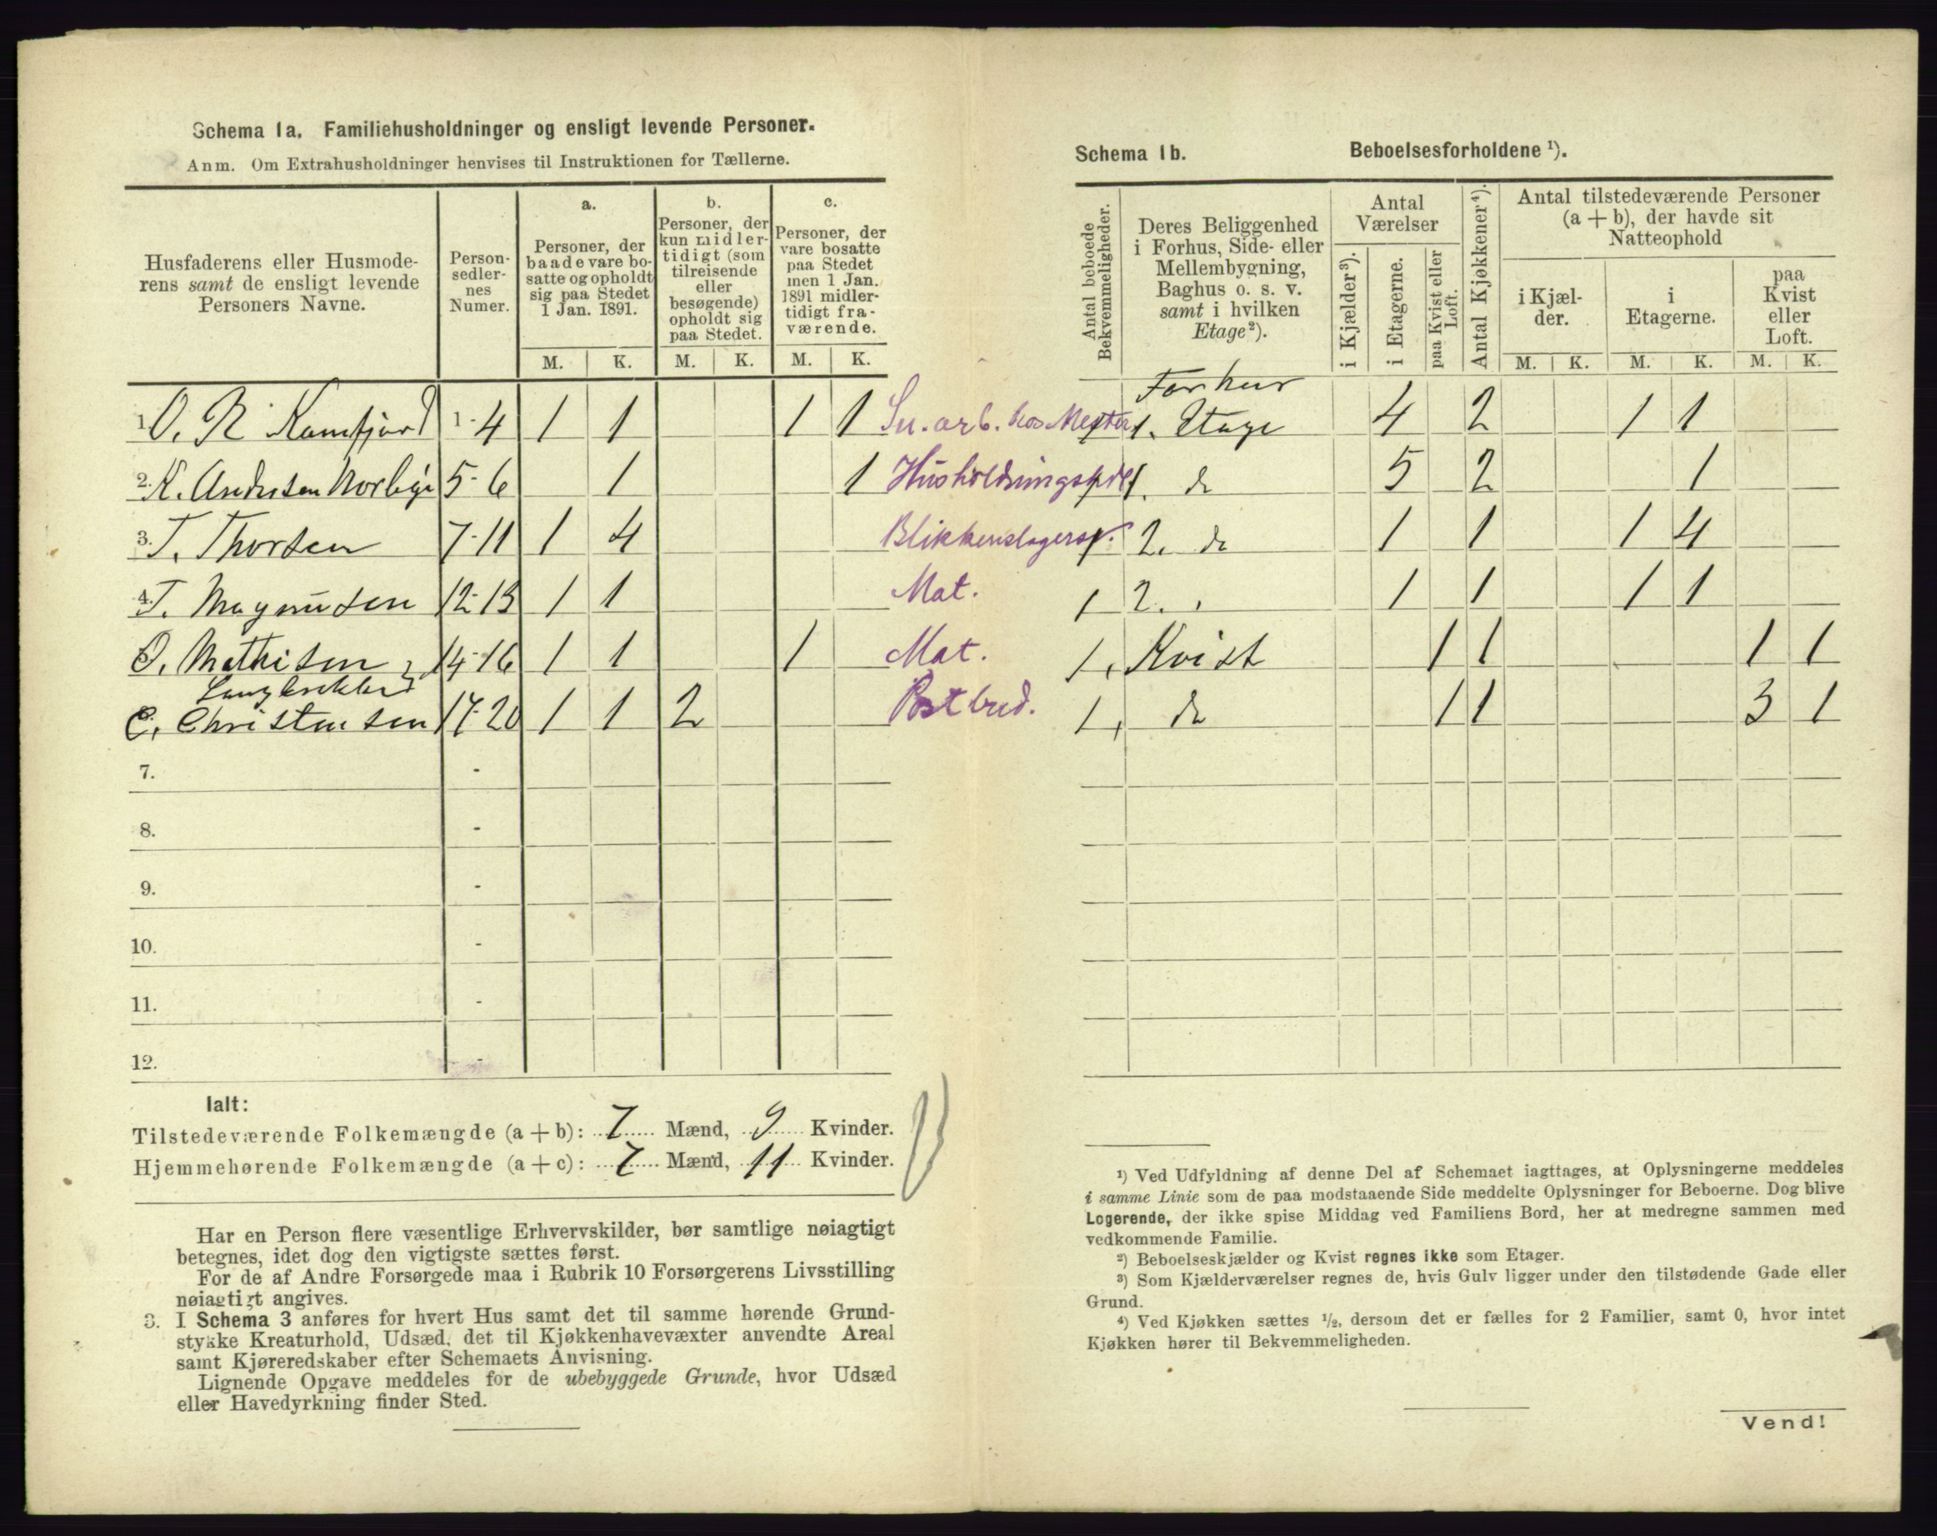 Schema 1a. Familiehusholdninger og ensligt levende Personer.
Anm. Om Extrahusholdninger henvises til Instruktionen for Tællerne.
Husfaderens eller Husmode-
rens samt de ensligt levende
Personers Navne.
Person-
sedler-
nes
Numer.
a.
Personer, der
baade vare bo-
satte og opholdt
sig paa Stedet
1 Jan. 1891.
b.
Personer, der
kun midler-
tidigt (som
tilreisende
eller
besøgende)
opholdt sig
paa Stedet.
c.
Personer, der
vare bosatte
paa Stedet
men 1 Jan.
1891 midler-
tidigt fra-
værende.
M. K. M. K. M. K.
1. O. N. Kamfjord 1-4 1 1 1 1 Sn. arb. hos Mester
2. K. Andersen Norbye 5-6 1 1
3. T. Thorsen 7-11 1 4 Blikkenslagersv.
4. T. Magnusen 12-13 1 1 Mat.
O. Mathisen 14-16 1 1 1 Mat.
C. Christensen 17-20 1 1 2 Postbud.
7. -
8. -
9. -
10. -
11. -
12. -
Ialt:
Tilstedeværende Folkemængde (a + b): 7 Mænd, 9 Kvinder.
Hjemmehørende Folkemængde (a + c): 7 Mænd, 11 Kvinder.
Har en Person flere væsentlige Erhvervskilder, bør samtlige nøiagtigt
betegnes, idet dog den vigtigste sættes først.
For de af Andre Forsørgede maa i Rubrik 10 Forsørgerens Livsstilling
nøiagtigt angives.
3. I Schema 3 anføres for hvert Hus samt det til samme hørende Grund-
stykke Kreaturhold, Udsæd, det til Kjøkkenhavevæxter anvendte Areal
samt Kjøreredskaber efter Schemaets Anvisning.
Lignende Opgave meddeles for de ubebyggede Grunde, hvor Udsæd
eller Havedyrkning finder Sted.
Schema 1b. Beboelsesforholdene ¹).
Antal beboede
Bekvemmeligheder.
Deres Beliggenhed
i Forhus, Side- eller
Mellembygning,
Baghus o. s. v.
samt i hvilken
Etage²).
Antal
Værelser
i Kjælder³).
i Etagerne.
paa Kvist eller
Loft.
Antal Kjøkkener⁴).
Antal tilstedeværende Personer
(a + b), der havde sit
Natteophold
i Kjæl-
der.
i
Etagerne.
paa
Kvist
eller
Loft.
M. K. M. K. M. K.
Forhus
1 1. Etage 4 2 1 1
1 1. do 5 2 1
1 2. do 1 1 1 4
1 2. " 1 1 1 1
1, Kvist 1 1 1 1
1, do 1 1 3 1
¹) Ved Udfyldning af denne Del af Schemaet iagttages, at Oplysningerne meddeles
i samme Linie som de paa modstaaende Side meddelte Oplysninger for Beboerne. Dog blive
Logerende, der ikke spise Middag ved Familiens Bord, her at medregne sammen med
vedkommende Familie.
²) Beboelseskjælder og Kvist regnes ikke som Etager.
³) Som Kjælderværelser regnes de, hvis Gulv ligger under den tilstødende Gade eller
Grund.
⁴) Ved Kjøkken sættes ½, dersom det er fælles for 2 Familier, samt 0, hvor intet
Kjøkken hører til Bekvemmeligheden.
Vend!